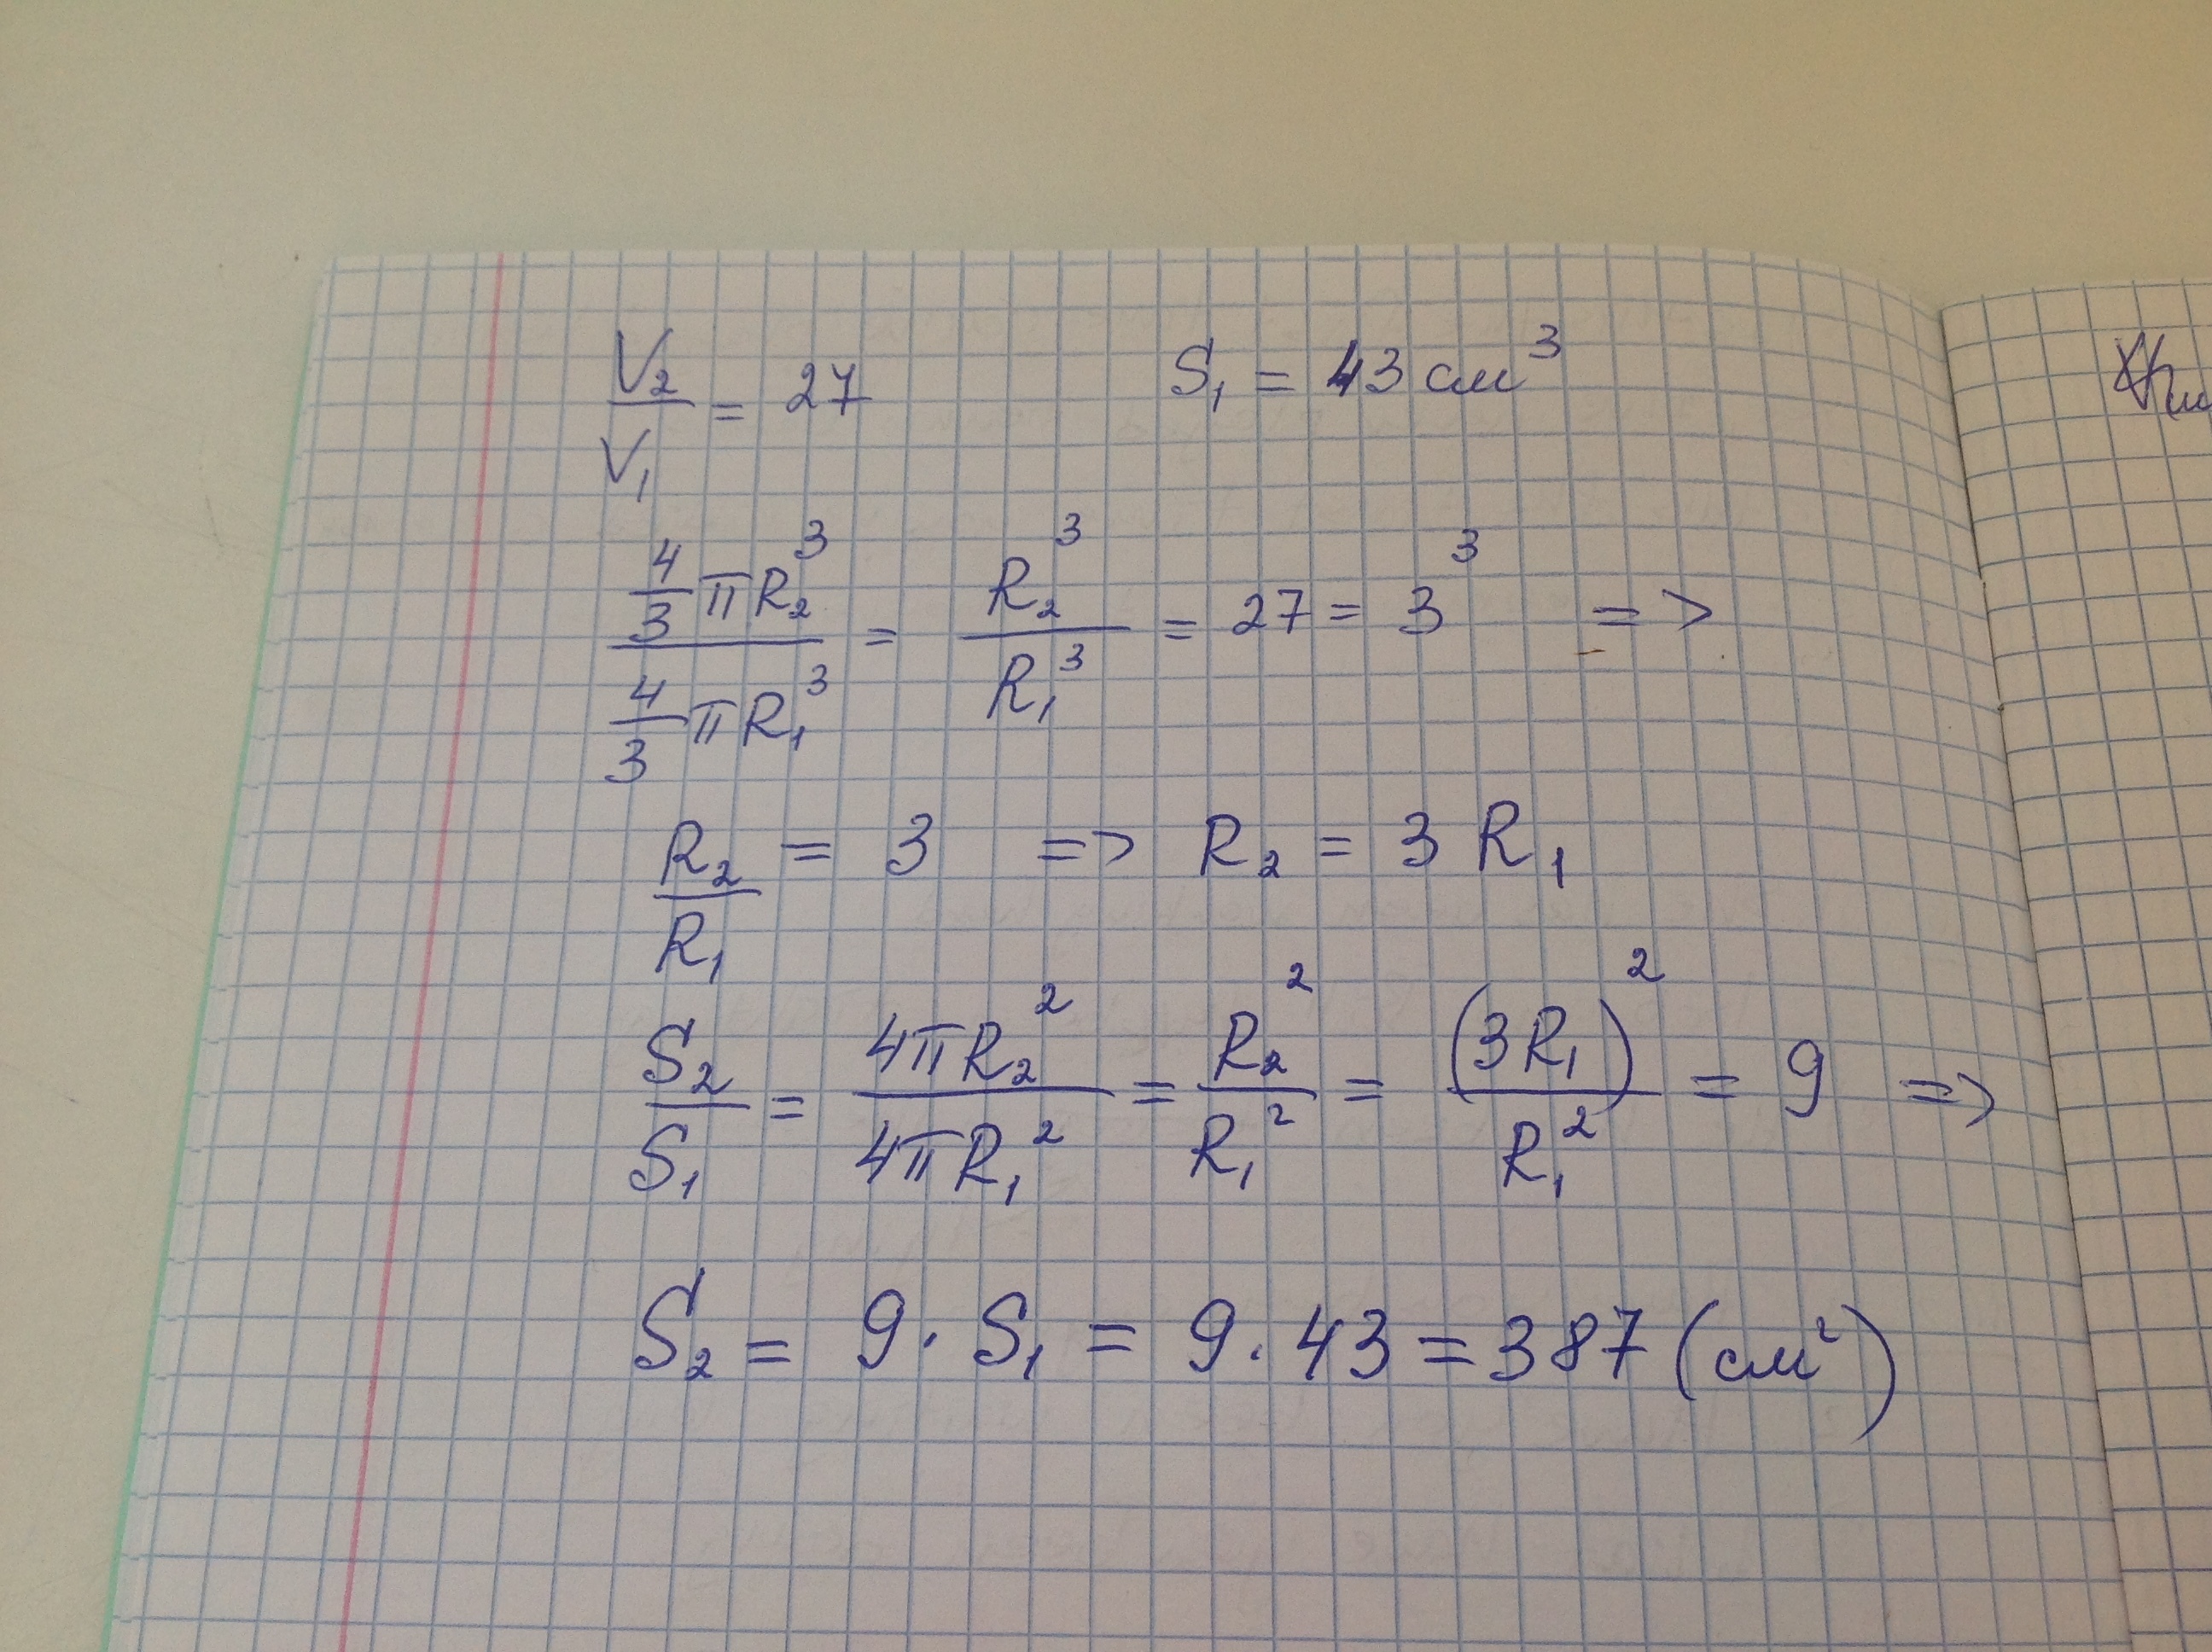 V₂/V₁ = 27    S₁ = 43 см³
(4/3 πR₂³)/(4/3 πR₁³) = R₂³/R₁³ = 27 = 3³ =>
R₂/R₁ = 3 => R₂ = 3 R₁
S₂/S₁ = 4πR₂²/4πR₁² = R₂²/R₁² = (3R₁)²/R₁² = 9 =>
S₂ = 9 · S₁ = 9 · 43 = 387 (см²)